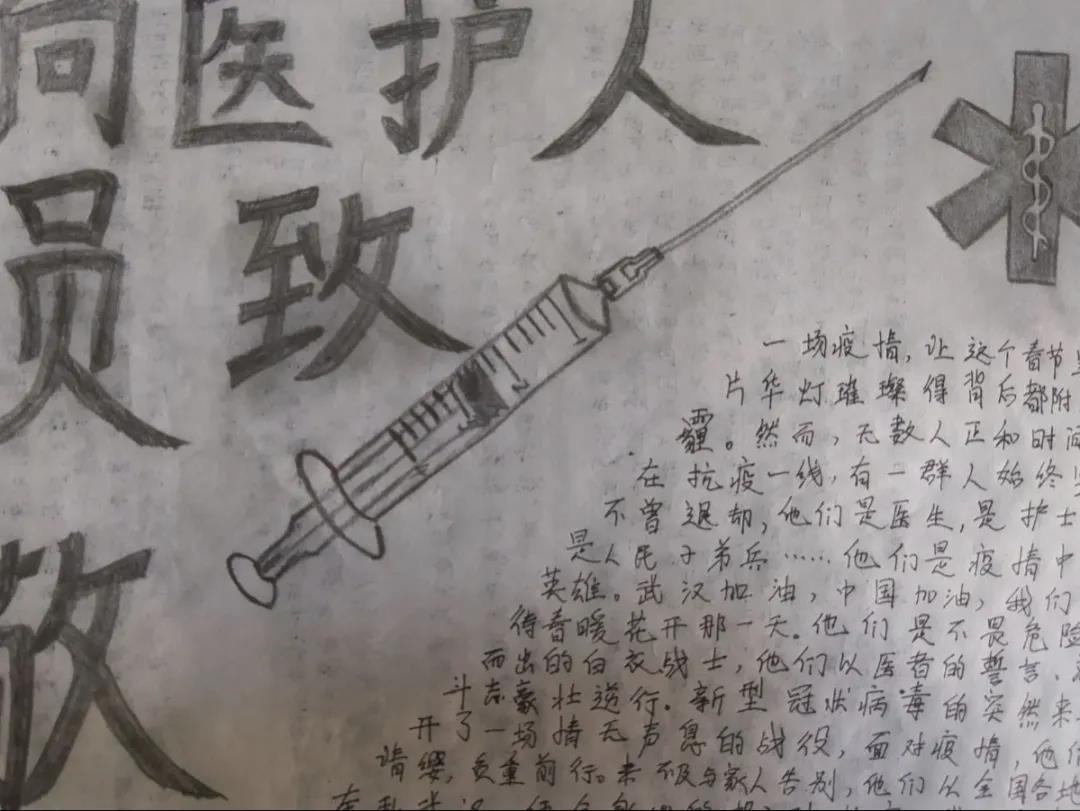 向医护人
员致
敬
一场疫情,让这个春节
片华灯璀璨得背后都附
霾。然而,无数人正和时间
在抗疫一线,有一群人始终
不曾退却,他们是医生,是护士
是人民子弟兵……他们是疫情中
英雄。武汉加油,中国加油,我们
待春暖花开那一天。他们是不畏危险
而出的白衣战士,他们以医者的誓言、
斗志豪壮逆行。新型冠状病毒的突然来
开了一场悄无声息的战役,面对疫情,他们
请缨,负重前行。来不及与家人告别,他们从全国各地